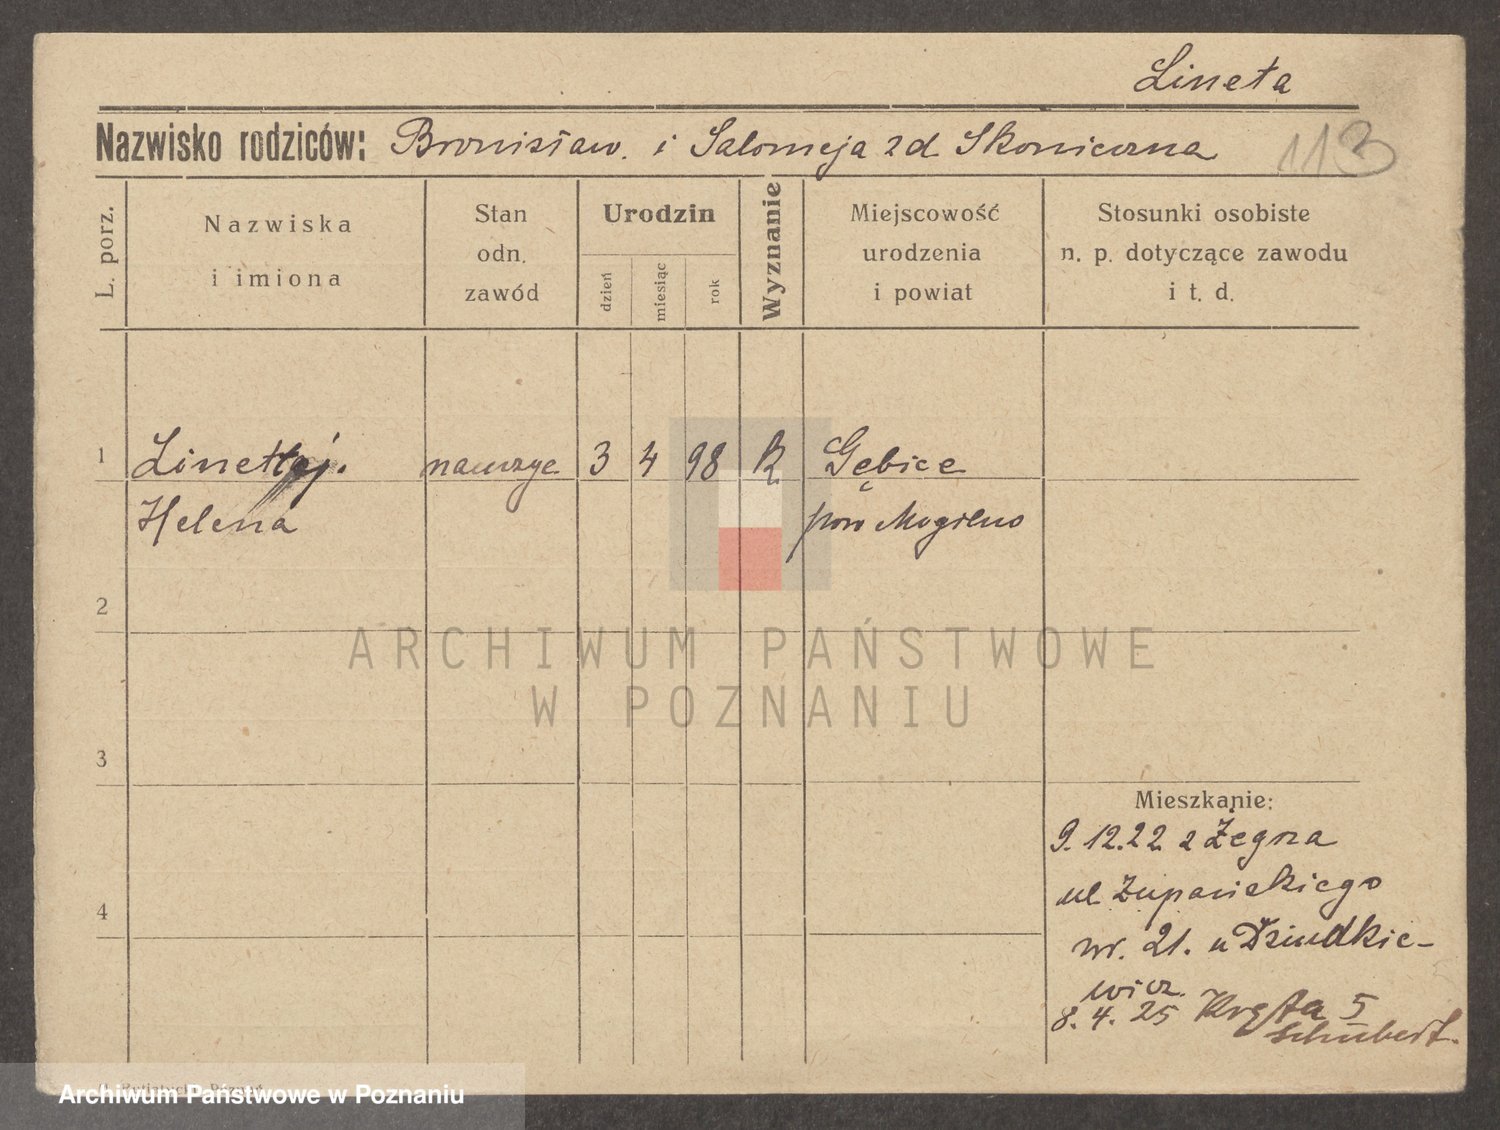 Lineta
Nazwisko rodziców: Bronisław. i Salomeja zd Skoniczna 113
L. porz.
Nazwiska
i imiona
Stan
odn.
zawód
Urodzin
dzień
miesiąc
rok
Wyznanie
Miejscowość
urodzenia
i powiat
Stosunki osobiste
n. p. dotyczące zawodu
i t. d.
1 nauczyc 3 4 98 R Gębice
Helena pow Mogilno
2
3
4
Mieszkanie:
9. 12. 22 z Żegrza
ul Żupańskiego
nr. 21. u Dziudkie-
wicz.
8. 4. 25 5
Schubert.
ARCHIWUM PAŃSTWOWE
W POZNANIU
Archiwum Państwowe w Poznaniu